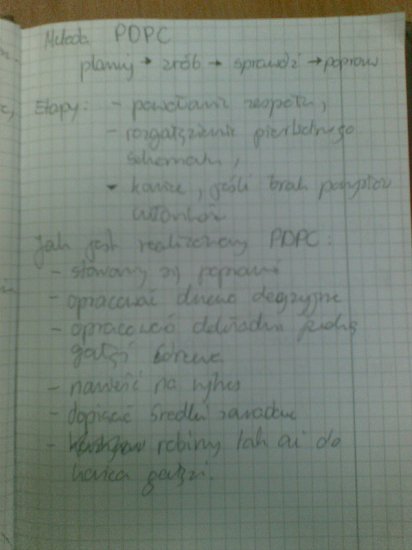 Metoda PDPC
planuj → zrób → sprawdź → popraw
Etapy: - powołanie zespołu,
- rozgałęzienie pierwotnego
schematu,
- koniec, jeśli brak pomysłów
członków
Jak jest realizowany PDPC:
- staramy się poprawić
- opracować drzewo decyzyjne
- opracować dokładnie każdą
gałąź drzewa
- nanieść na wykres
- dopisać środki zaradcze
- robimy tak aż do
końca gałęzi.